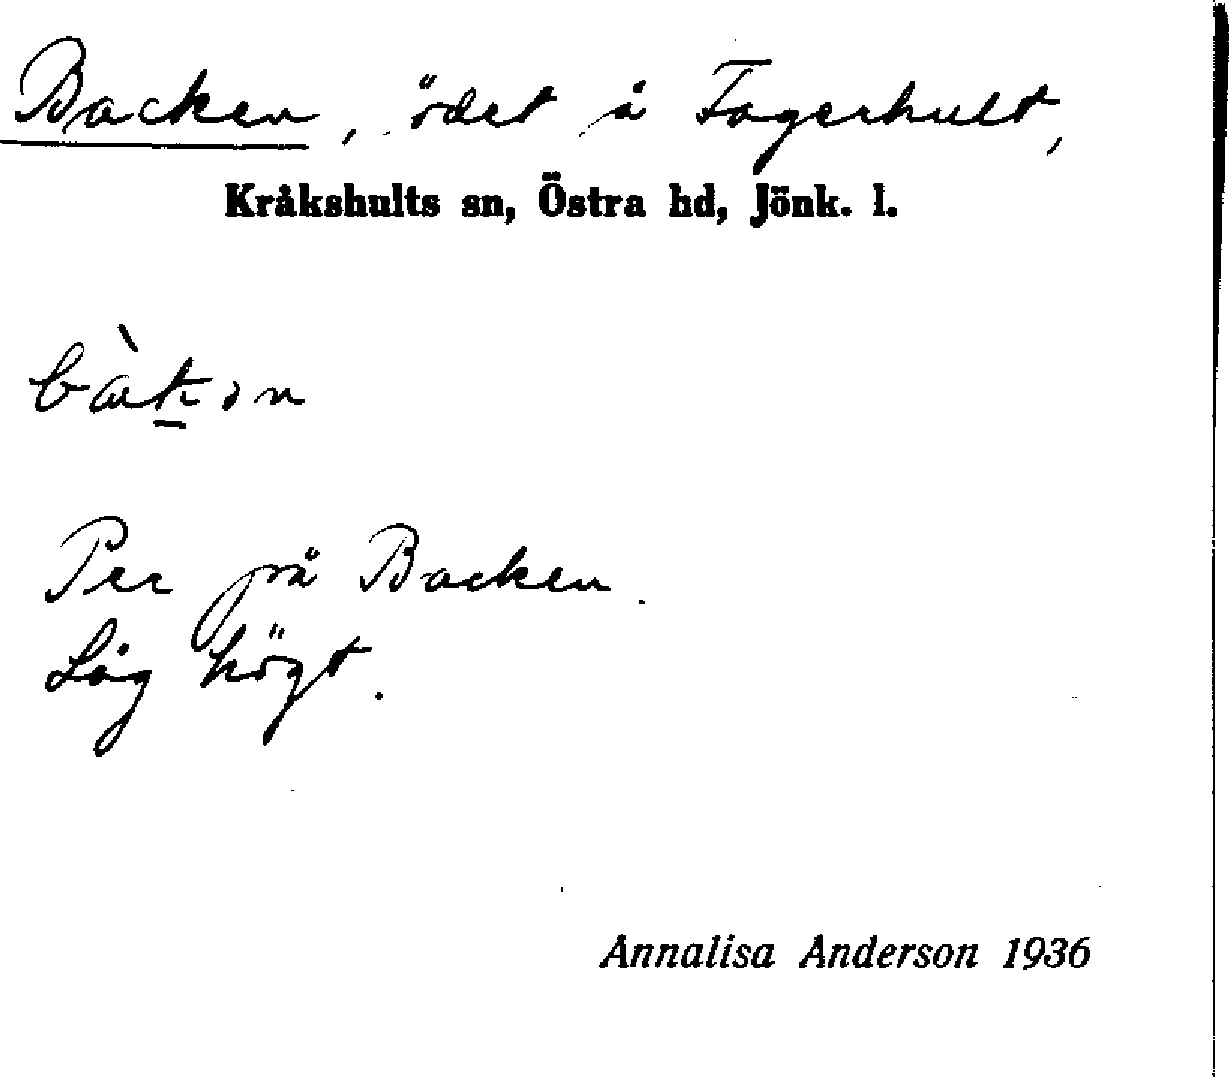 Backen, ödet å Fagerhult,
Kråkshults sn, Östra hd, Jönk. l.
Per på Backen.
Låg högt.
Annalisa Anderson 1936